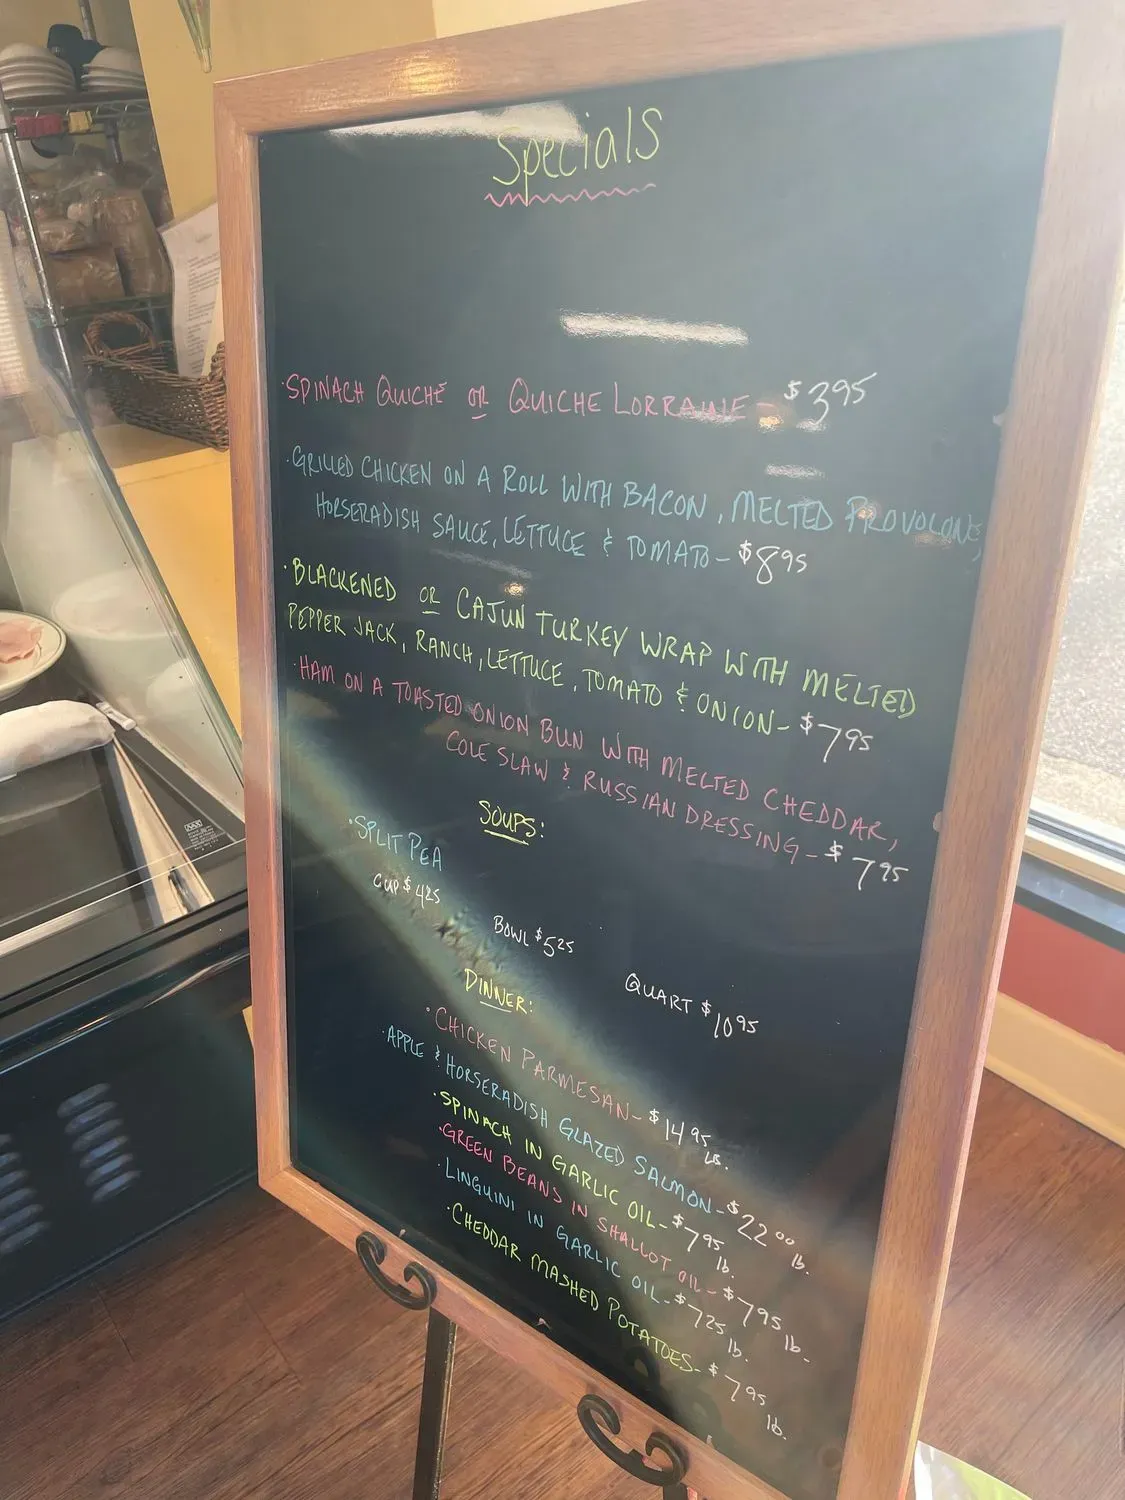 Specials
·SPINACH QUICHE OR QUICHE LORRAINE - $3.95
·GRILLED CHICKEN ON A ROLL WITH BACON, MELTED PROVOLONE,
HORSERADISH SAUCE, LETTUCE & TOMATO - $8.95
·BLACKENED OR CAJUN TURKEY WRAP WITH MELTED
PEPPER JACK, RANCH, LETTUCE, TOMATO & ONION - $7.95
·HAM ON A TOASTED ONION BUN WITH MELTED CHEDDAR,
COLE SLAW & RUSSIAN DRESSING - $7.95
SOUPS:
·SPLIT PEA
CUP $4.25 BOWL $5.25 QUART $10.95
DINNER:
·CHICKEN PARMESAN - $14.95 LB.
·APPLE & HORSERADISH GLAZED SALMON - $22.00 lb.
·SPINACH IN GARLIC OIL - $7.95 lb.
·GREEN BEANS IN SHALLOT OIL - $7.95 lb.
·LINGUINI IN GARLIC OIL - $7.25 lb.
·CHEDDAR MASHED POTATOES - $7.95 lb.